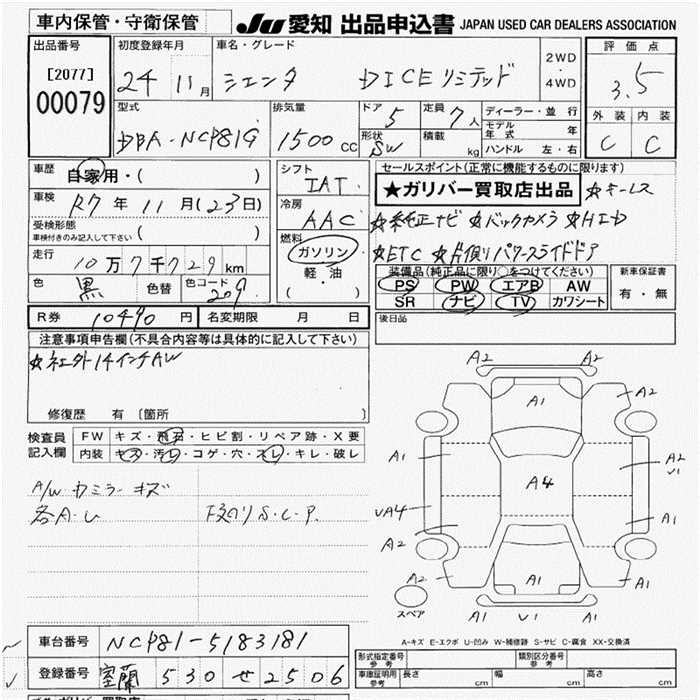 車内保管・守衛保管
JU 愛知 出品申込書 JAPAN USED CAR DEALERS ASSOCIATION
出品番号
[2077]
00079
初度登録年月
24 11月
車名・グレード
シエンタ DICEリミテッド
2WD
・
4WD
評価点
3.5
外装 内装
C C
型式
DBA-NCP81G
排気量
1500cc
ドア
5
定員
7人
形状
SW
積載
kg
ディーラー・並 行
モデル年式 年
ハンドル 左・右
車歴
自家用・( )
車検
R7年11月(23日)
受検形態
車検付きのみ記入して下さい ( )
走行
10万7千729km
色
黒
色替
色コード
209
シフト
IAT
冷房
AAC
燃料
ガソリン
・
軽・油
( )
セールスポイント(正常に機能するものに限ります)
★ガリバー買取店出品 ☆キーレス
☆純正ナビ ☆バックカメラ ☆HID
☆ETC ☆片側パワースライドドア
装備品(純正品に限り○をつけてください)
PS PW エアB AW
SR ナビ TV カワシート
新車保証書
有・無
後日品
R券 10490円
名変期限 月 日
注意事項申告欄(不具合内容等は具体的に記入して下さい)
☆社外14インチAW
修復歴 有 [箇所 ]
検査員
記入欄
FW キズ・飛石・ヒビ割・リペア跡・X要
内装 キズ・汚レ・コゲ・穴・スレ・キレ・破レ
A/W カミラーキズ
各A-U
下廻りS.C.P.
A2 A2
A1
A2
A1
A4
A2
U1
UA4
A2
A1
A2
A1
A2
A1 U1 A1
スペア
A-キズ E-エクボ U-凹み W-補修跡 S-サビ C-腐食 XX-交換済
車台番号
NCP81-5183181
登録番号
室蘭 530 せ 2506
形式指定番号
参考
類別区分番号
参考
車庫証明用
参考
長さ cm 幅 cm 高さ cm